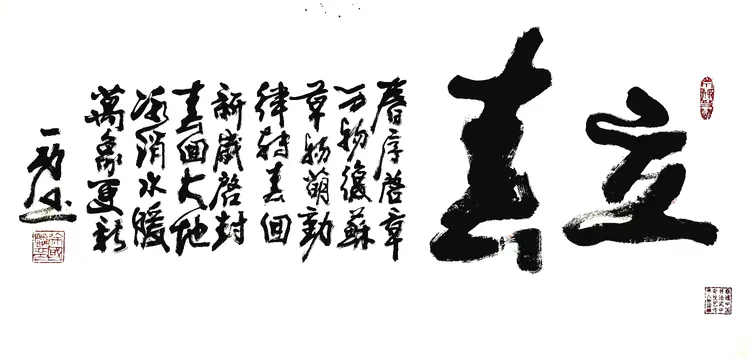 立春
春序啓章
万物復蘇
草物萌動
律轉春回
新歲啓封
春回大地
冰消水暖
萬象更新